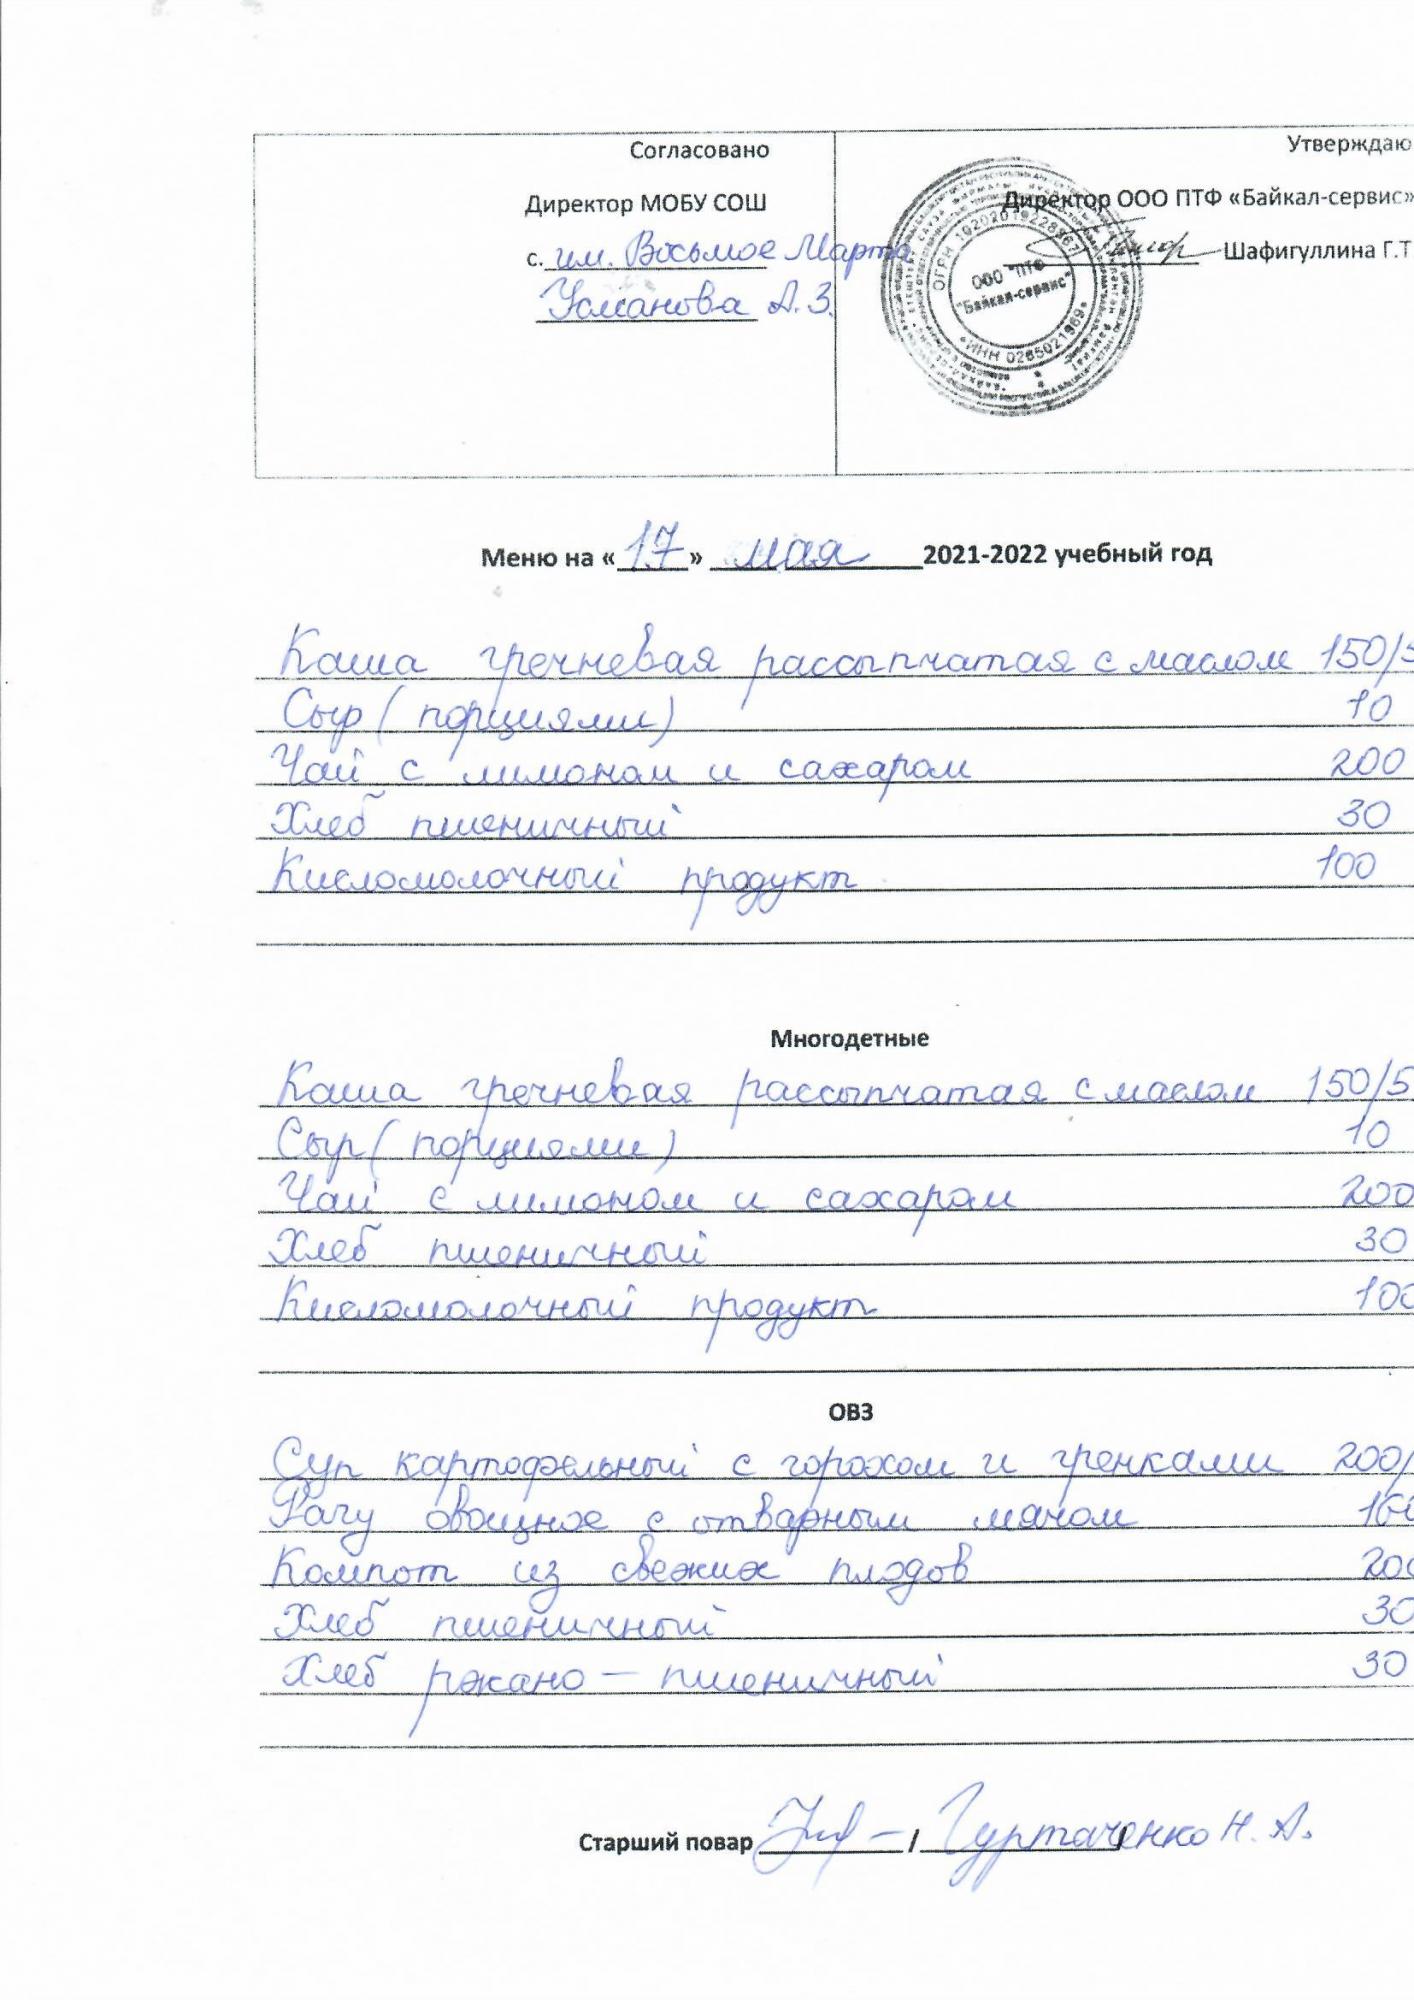 Согласовано
Директор МОБУ СОШ
с. им. Восьмое Марта
Усманова А.З.
Утверждаю
Директор ООО ПТФ «Байкал-сервис»
Шафигуллина Г.Т
ОГРН 1020201922896
ООО "ПТФ
"Байкал-сервис"
ИНН 0265021969
Меню на «17» мая 2021-2022 учебный год
Каша гречневая рассыпчатая с маслом 150/5
Сыр (порциями) 10
Чай с лимоном и сахаром 200
Хлеб пшеничный 30
Кисломолочный продукт 100
Многодетные
Каша гречневая рассыпчатая с маслом 150/5
Сыр (порциями) 10
Чай с лимоном и сахаром 200
Хлеб пшеничный 30
Кисломолочный продукт 100
ОВЗ
Суп картофельный с горохом и гренками 200/
Рагу овощное с отварным мясом
Компот из свежих плодов 200
Хлеб пшеничный 30
Хлеб ржано-пшеничный 30
Старший повар / Гуртаченко Н.А.